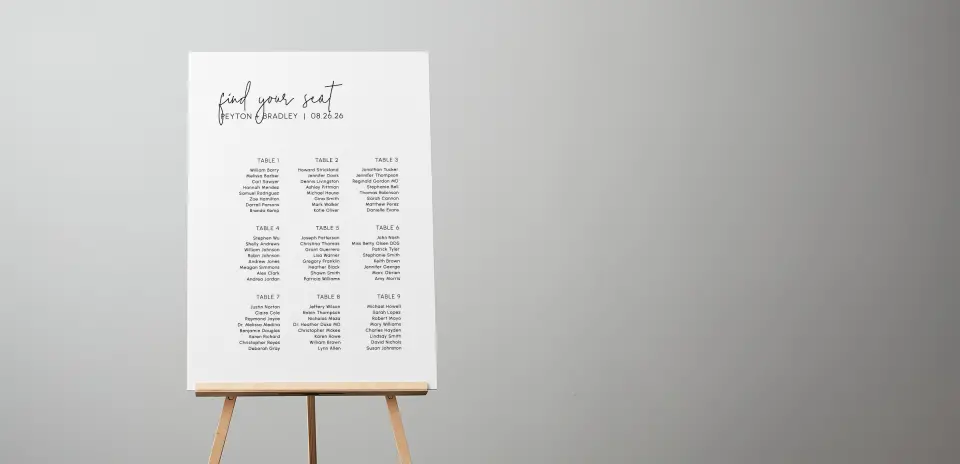 find your seat
PEYTON + BRADLEY | 08.26.26
TABLE 1
William Barry
Melissa Barber
Carl Sawyer
Hannah Mendez
Samuel Rodriguez
Zoe Hamilton
Darrell Parsons
Brenda Kemp
TABLE 2
Howard Strickland
Jennifer Cook
Dennis Livingston
Ashley Pittman
Michael House
Gina Smith
Mark Walker
Katie Oliver
TABLE 3
Jonathan Tucker
Jennifer Thompson
Reginald Gordon MD
Stephanie Bell
Thomas Robinson
Sarah Cannon
Matthew Perez
Danielle Evans
TABLE 4
Stephen Wu
Shelly Andrews
William Johnson
Robin Johnson
Andrew Jones
Meagan Simmons
Alex Clark
Andrea Jordan
TABLE 5
Joseph Patterson
Christina Thomas
Grant Guerrero
Lisa Warner
Gregory Franklin
Heather Black
Shawn Smith
Patricia Williams
TABLE 6
John Nash
Miss Betty Olsen DDS
Patrick Tyler
Stephanie Smith
Keith Brown
Jennifer George
Marc Obrien
Amy Morris
TABLE 7
Justin Norton
Claire Cole
Raymond Jayne
Dr. Melissa Medina
Benjamin Douglas
Karen Richard
Christopher Reyes
Deborah Gray
TABLE 8
Jeffery Wilson
Robin Thompson
Nicholas Meza
Dr. Heather Case MD
Christopher Mckee
Karen Rowe
William Brown
Lynn Allen
TABLE 9
Michael Howell
Sarah Lopez
Robert Mayo
Mary Williams
Charles Hayden
Lindsay Smith
David Nichols
Susan Johnston